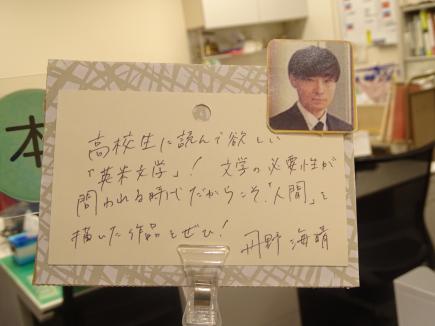 本
高校生に読んで欲しい
「英米文学」！ 文学の必要性が
問われる時代だからこそ、「人間」を
描いた作品をぜひ！ 丹野 海晴